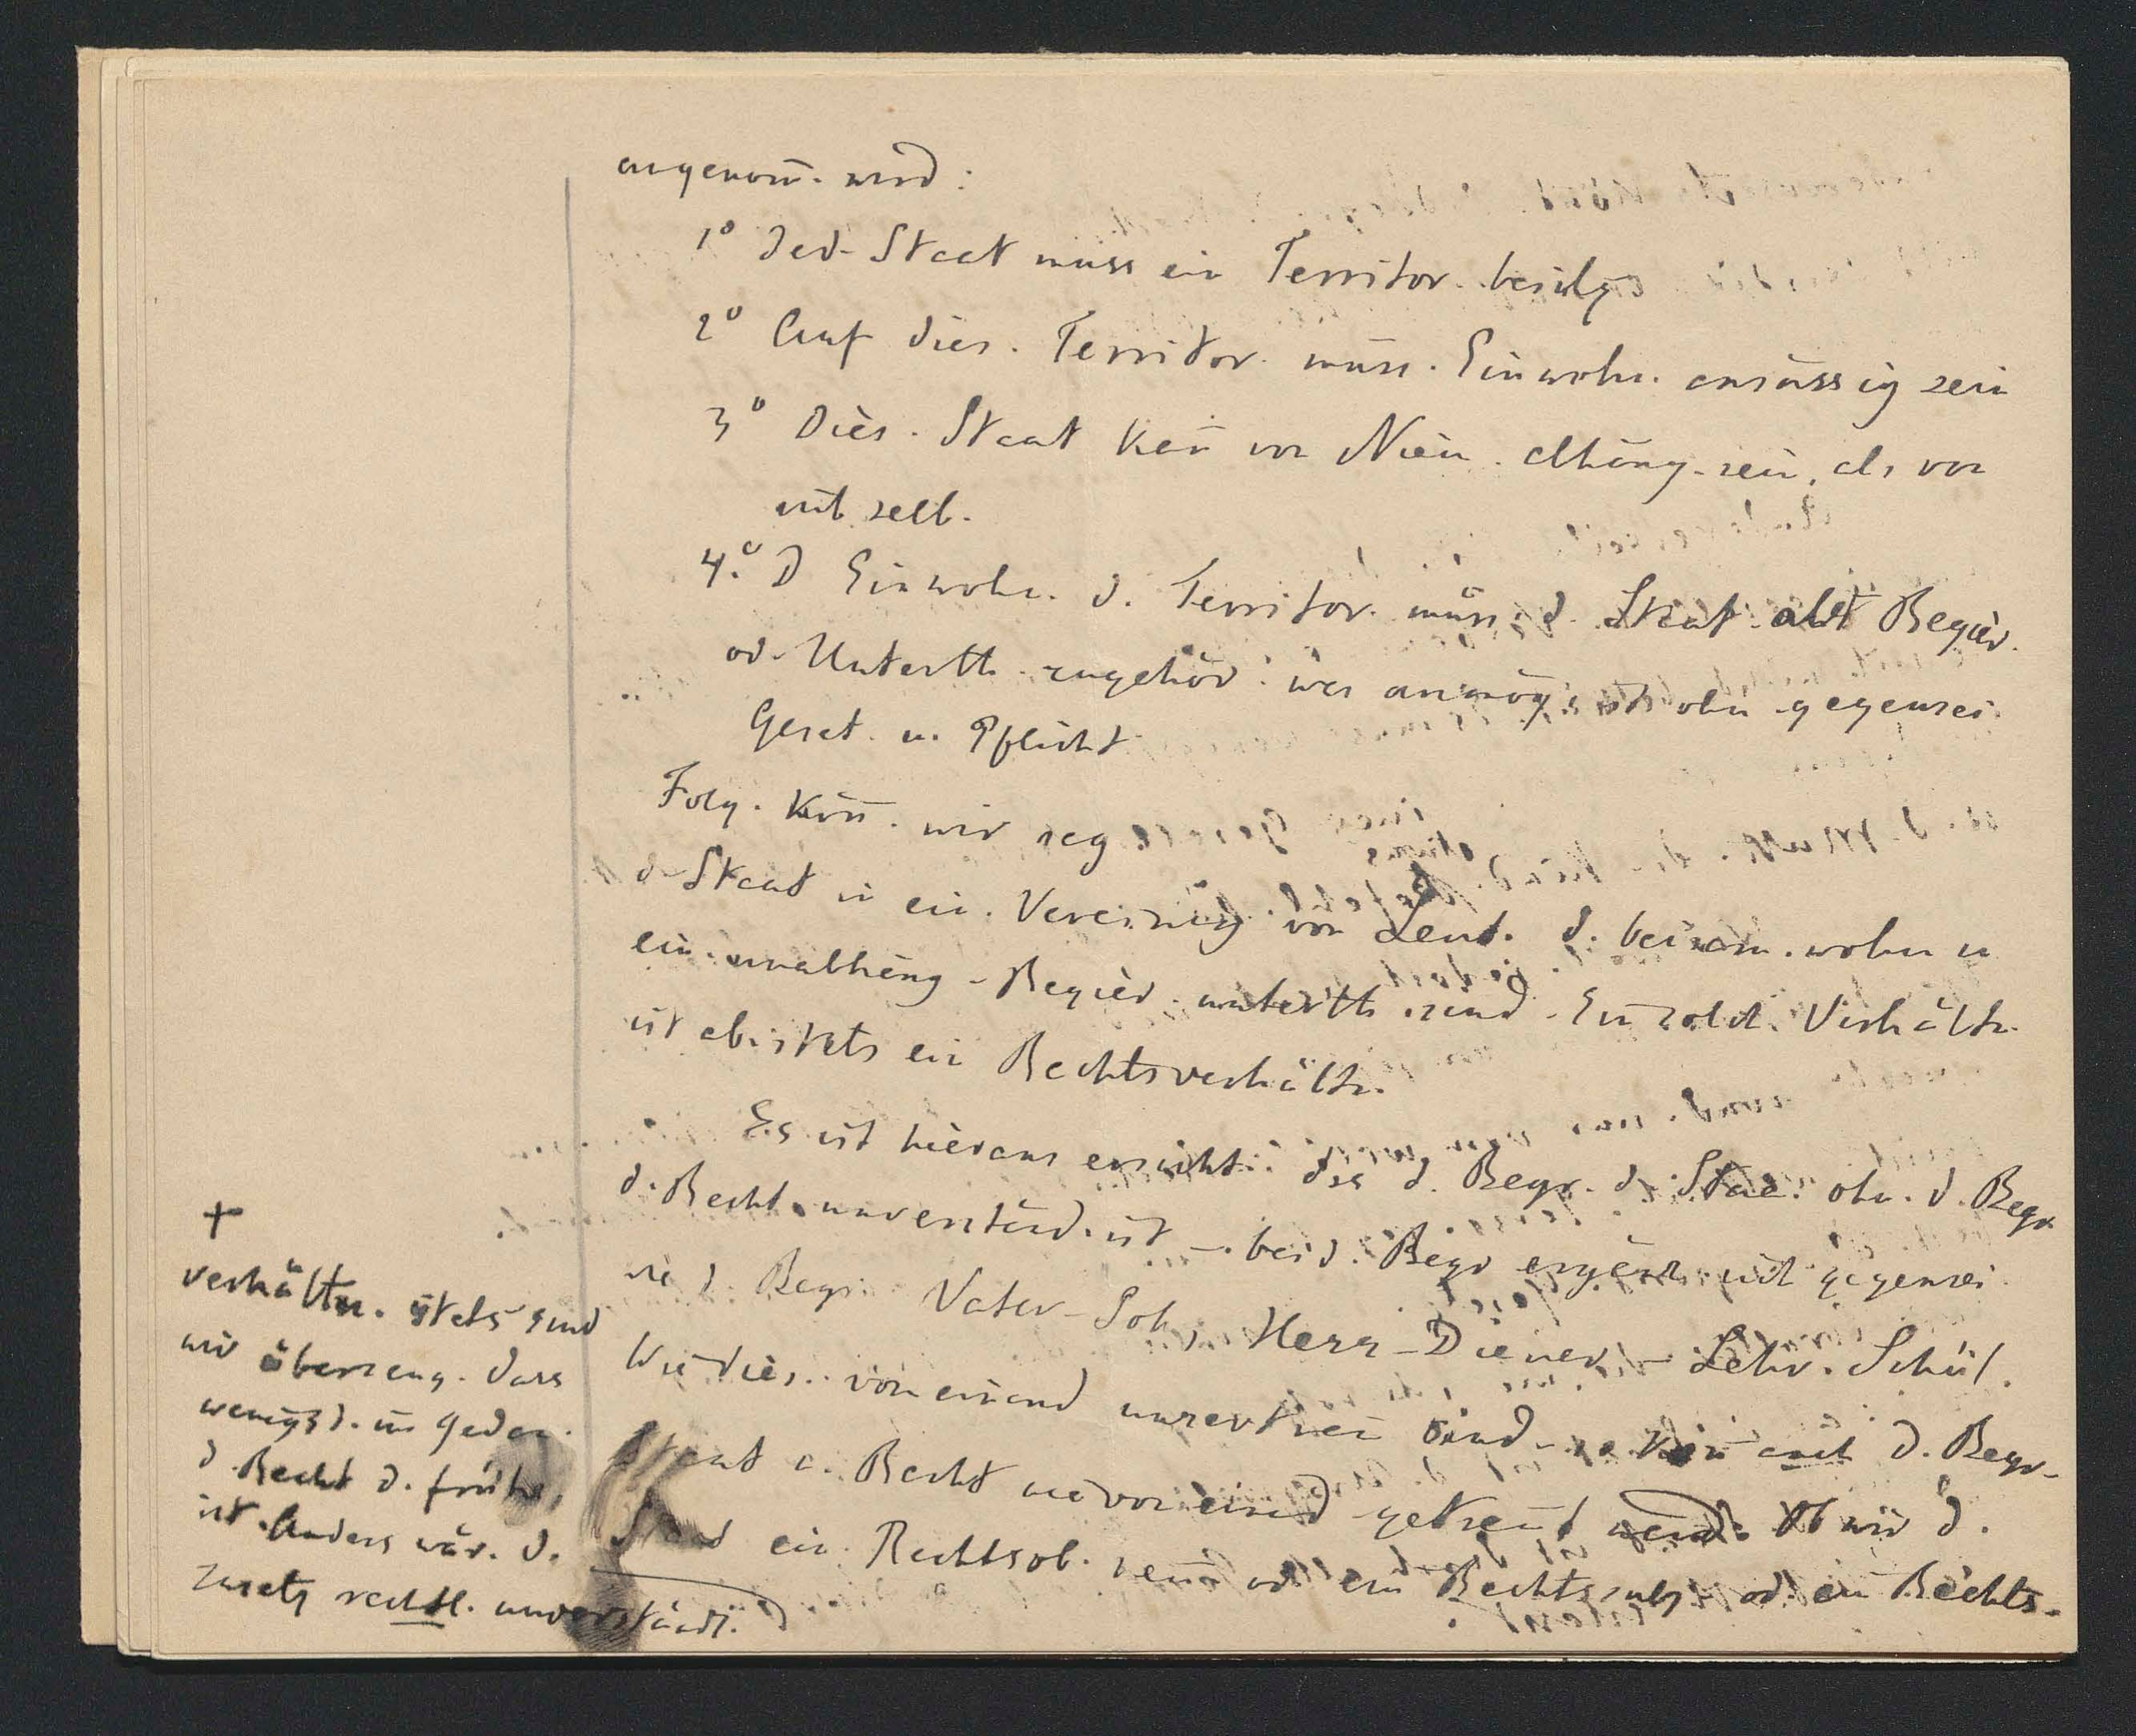 angenom̄. wird:
1° Jed. Staat muss ein Territor. besitz
2° Auf dies. Territor. müss. Einwohn. ansässig sein
3° Dies. Staat kan̄ von Niem. abhäng. sein, als von
sich selb.
4.° D Einwohn. d. Territor. müss. d. Staat als Regier.
od. Unterth. zugehör: was unmög. ist ohn gegensei.
Geset. u. Pflicht
Folg. kön̄. wir sag
d. Staat is ein. Vereinig von Leut. d. beisam. wohn u
ein. unabhäng. Regier. unterth. sind. Ein solch. Verhältn.
ist ab. stets ein Rechtsverhältn.
Es ist hieraus ersichtl. dss d. Begr. d. Staa. ohn. d. Begr.
d. Recht. unverständ. ist — beid. Begr ergänz. sich gegensei.
wie d. Begr. Vater-Soh, Herr-Diener, — Lehr. Schül.
Wie dies. von einand unzertren̄ sind. so kön̄ auch d. Begr.
Staat u. Recht nie von einand getren̄t werd. Ob wir d.
Staat ein. Rechtsob. nen̄ od ein Rechtssubj od. ein Rechts-
+
verhältn. stets sind
wir überzeug. dass
wenigst. im Gedan.
d. Recht d. früher,
ist. Anders wär. d.
Zusatz rechtl. unverständl.